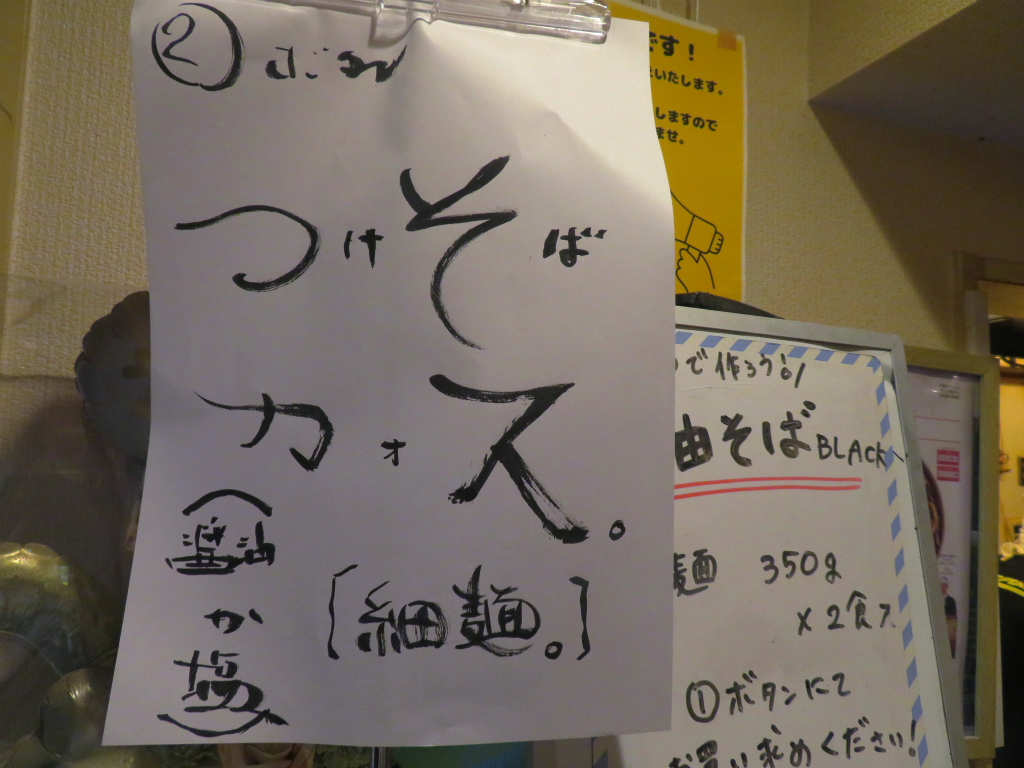 ②
つけそば
カォス。
(醤油
か
塩)
[細麺。]
です!
いたします。
しますので
ませ。
で作ろう!
油そばBLACK
麺 350g
×2食入
①ボタンにて
お買い求めください!